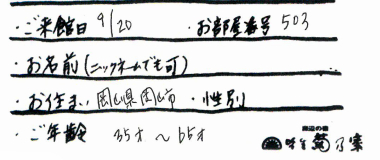 ・ご来館日 9/20 ・お部屋番号 503
・お名前(ニックネームでも可)
・お住まい 岡山県岡山市 ・性別
・ご年齢 35才 〜 65才
海辺の宿